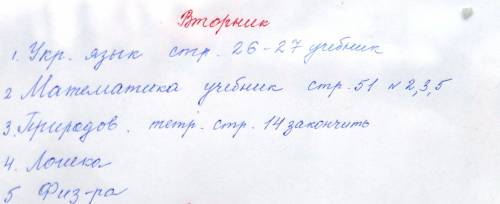 Вторник
1. Укр. язык стр. 26-27 учебник
2 Математика учебник стр. 51 №2,3,5
3. Природов. тетр. стр. 14 закончить
4. Логика
5 Физ-ра